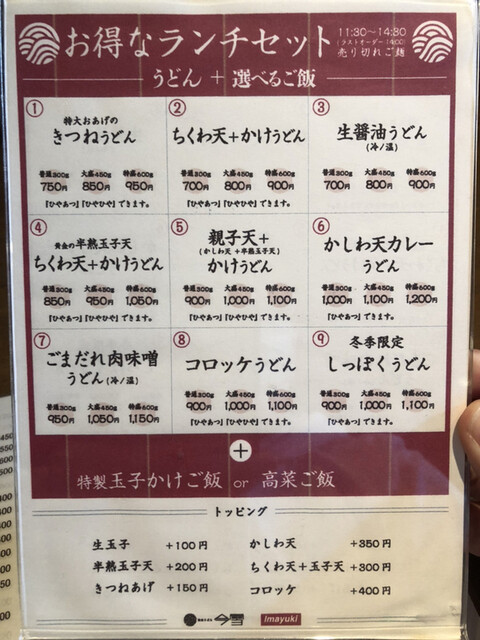 お得なランチセット
11:30〜14:30
(ラストオーダー 14:00)
売り切れご麺
うどん + 選べるご飯
①
特大おあげの
きつねうどん
普通300g 大盛450g 特盛600g
750円 850円 950円
「ひやあつ」「ひやひや」できます。
②
ちくわ天+かけうどん
普通300g 大盛450g 特盛600g
700円 800円 900円
「ひやあつ」「ひやひや」できます。
③
生醤油うどん
(冷/温)
普通300g 大盛450g 特盛600g
700円 800円 900円
④
黄金の半熟玉子天
ちくわ天+かけうどん
普通300g 大盛450g 特盛600g
850円 950円 1,050円
「ひやあつ」「ひやひや」できます。
⑤
親子天+
(かしわ天+半熟玉子天)
かけうどん
普通300g 大盛450g 特盛600g
900円 1,000円 1,100円
「ひやあつ」「ひやひや」できます。
⑥
かしわ天カレー
うどん
普通300g 大盛450g 特盛600g
1,000円 1,100円 1,200円
「ひやあつ」できます。
⑦
ごまだれ肉味噌
うどん(冷/温)
普通300g 大盛450g 特盛600g
950円 1,050円 1,150円
⑧
コロッケうどん
普通300g 大盛450g 特盛600g
900円 1,000円 1,100円
「ひやあつ」「ひやひや」できます。
⑨
冬季限定
しっぽくうどん
普通300g 大盛450g 特盛600g
900円 1,000円 1,100円
「ひやあつ」できます。
+
特製玉子かけご飯 or 高菜ご飯
トッピング
生玉子 +100円
半熟玉子天 +200円
きつねあげ +150円
かしわ天 +350円
ちくわ天+玉子天 +300円
コロッケ +400円
今雪
Imayuki